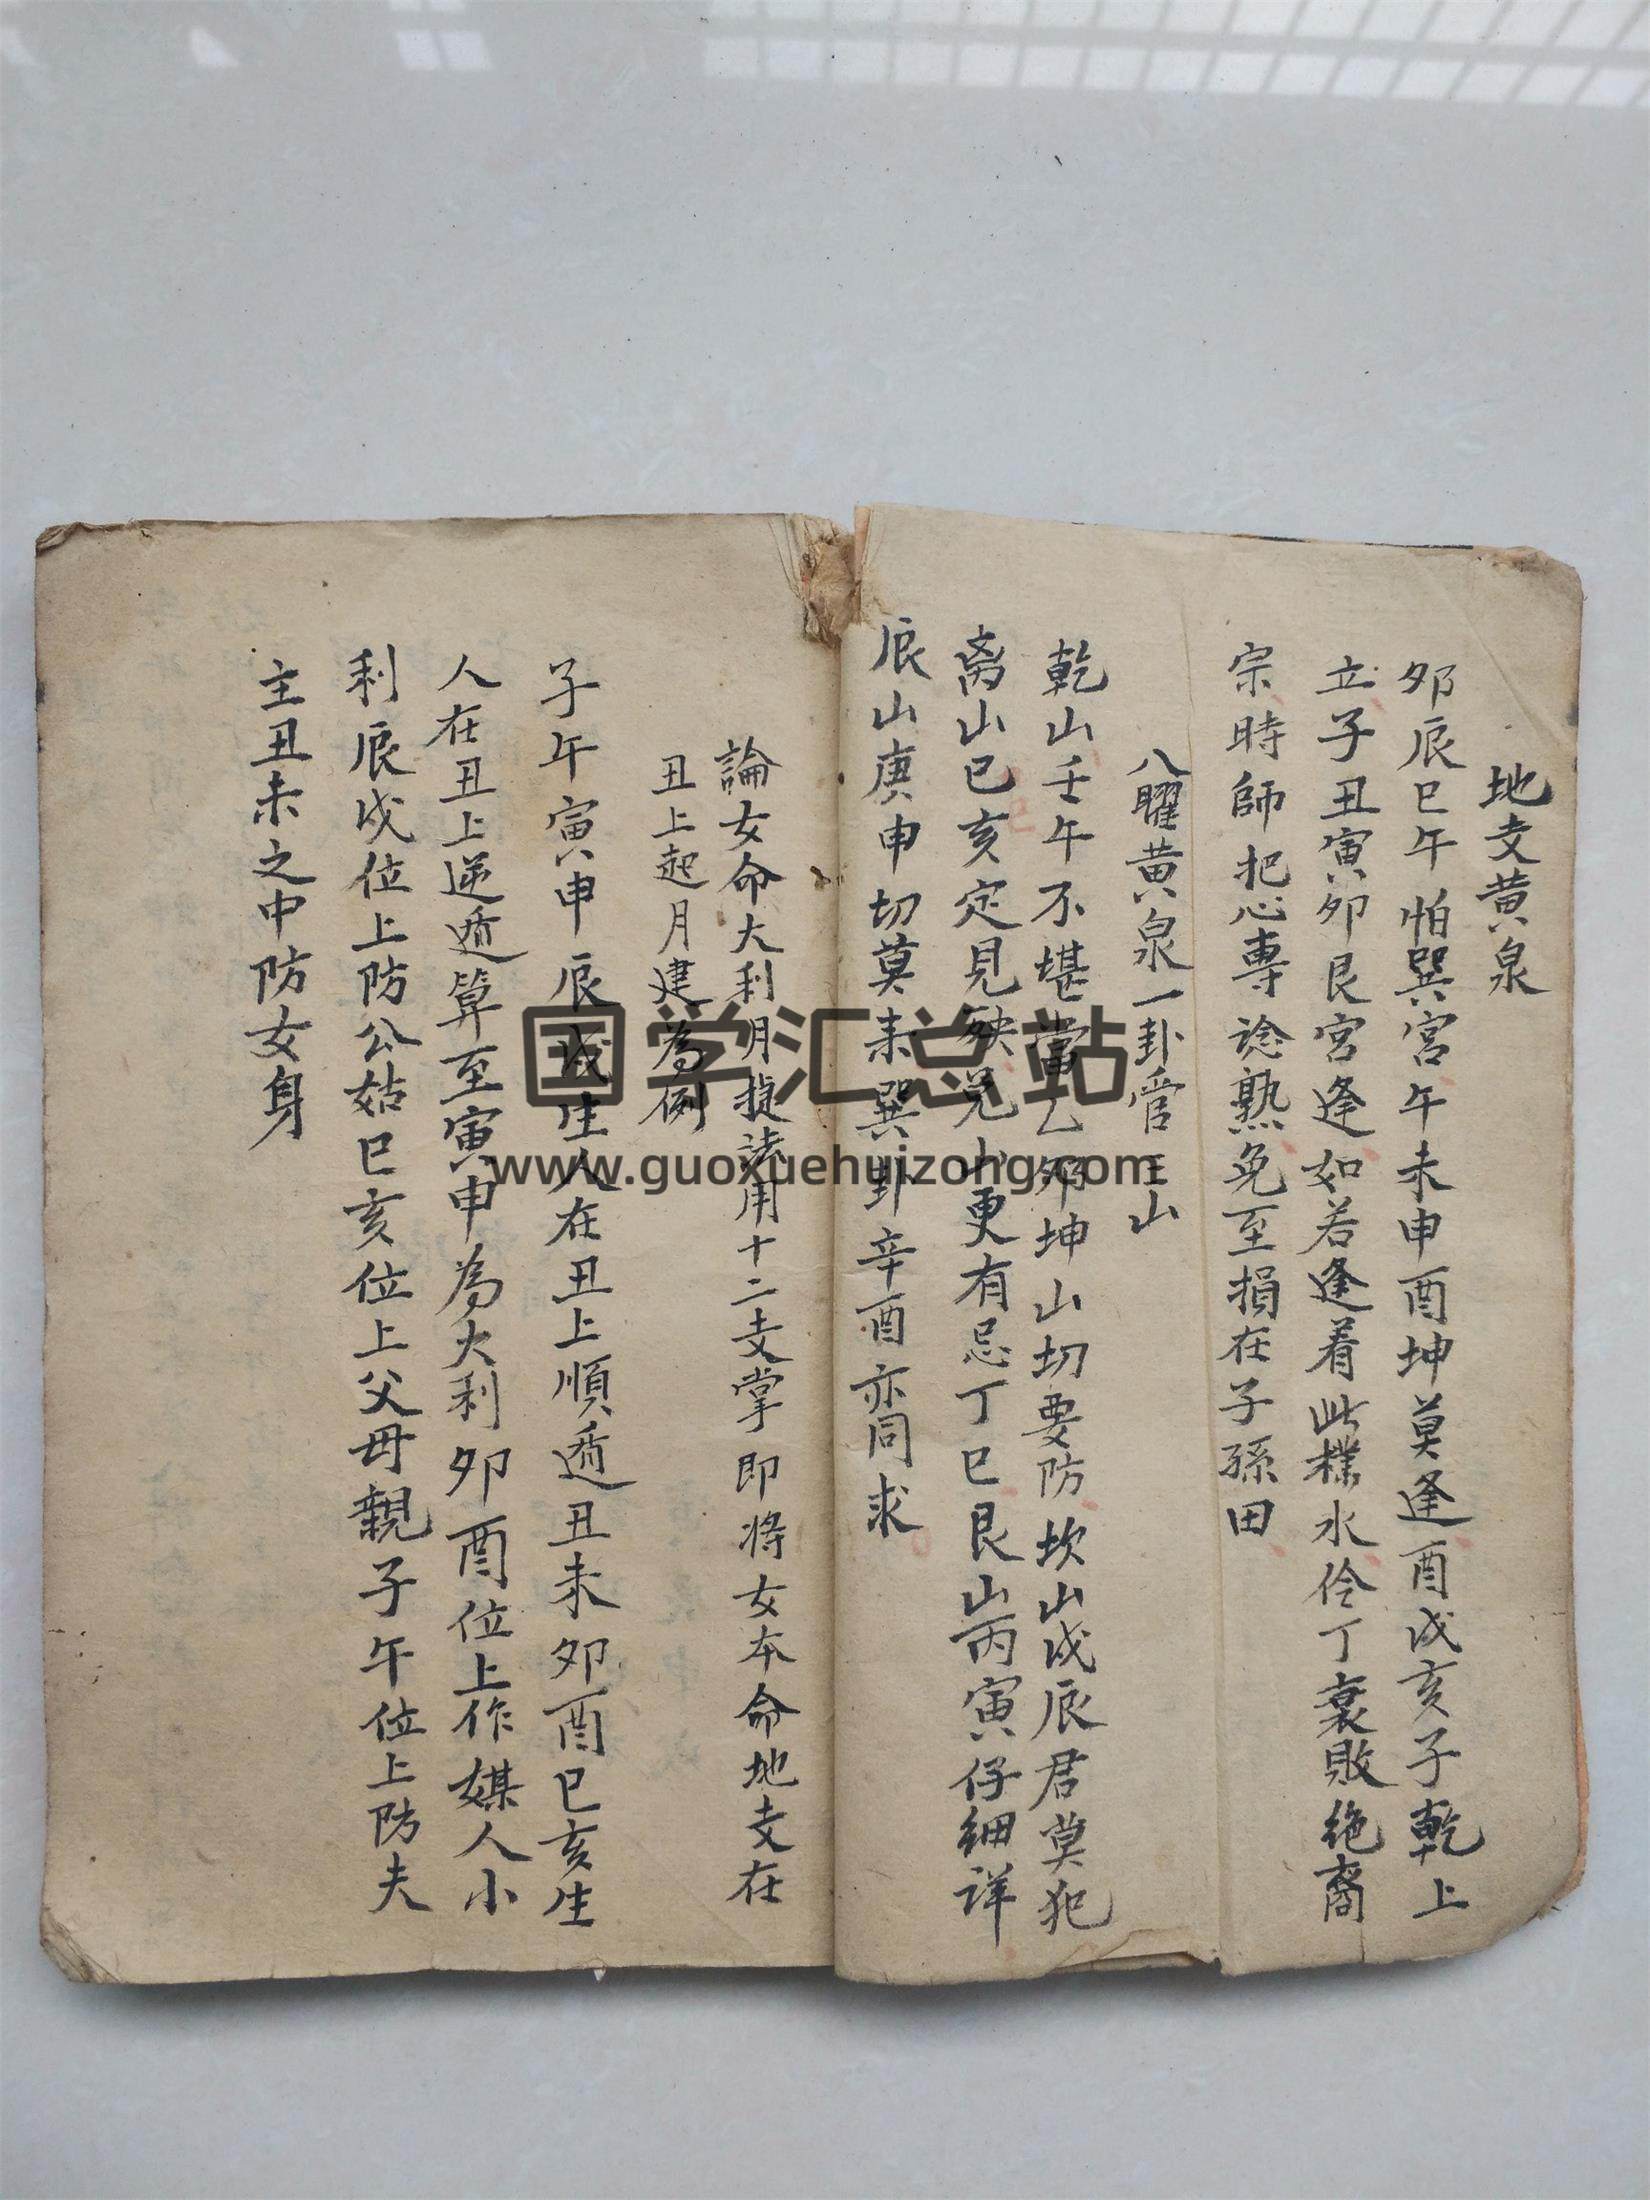 地支黄泉
夘辰巳午怕巽宮午未申酉坤莫逢酉戌亥子乾上
立子丑寅夘艮宮逢如若逢着此樣水伶丁衰敗绝裔
宗時師把心專諗熟免至損在子孫田
八曜黄泉一卦管三山
乾山壬午不堪當乙夘坤山切要防坎山戌辰君莫犯
离山巳亥定見殃兑山更有忌丁巳艮山丙寅仔細詳
辰山庚申切莫来巽卦辛酉亦同求
論女命大利月捷法用十二支掌即将女本命地支在
丑上起月建為例
子午寅申辰戌生人在丑上順遁丑未夘酉巳亥生
人在丑上逆遁算至寅申為大利夘酉位上作媒人小
利辰戌位上防公姑巳亥位上父母親子午位上防夫
主丑未之中防女身
国学汇总站
www.guoxuehuizong.com